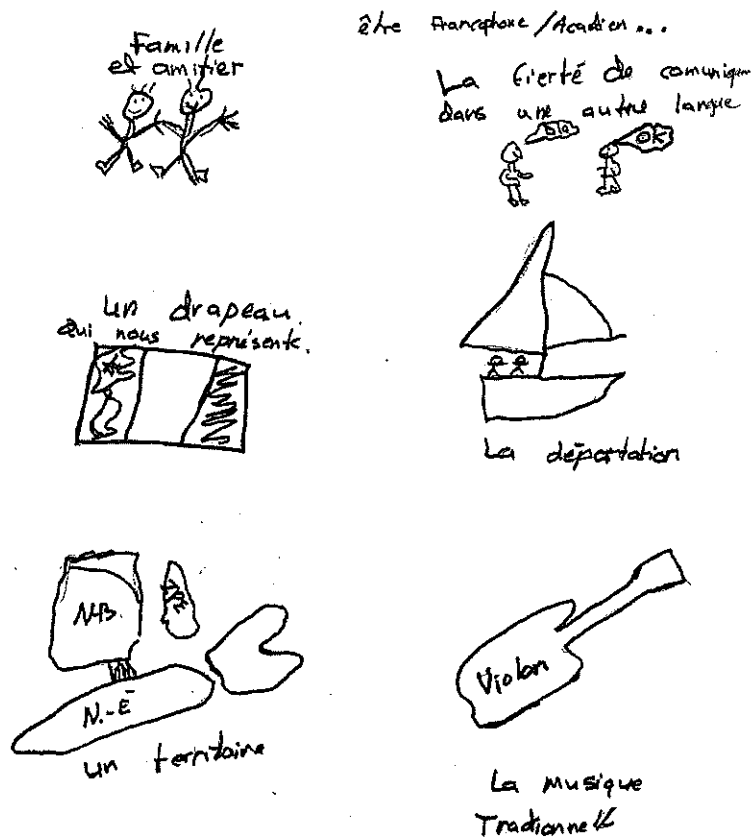 être Francophone / Acadien...
Famille
et amitier
La fierté de comuniqu
dans une autre langue
bla
OK
un drapeau
qui nous représente.
La déportation
N.-B.
N.-É
un territoire
Violon
La musique
Tradionnelle